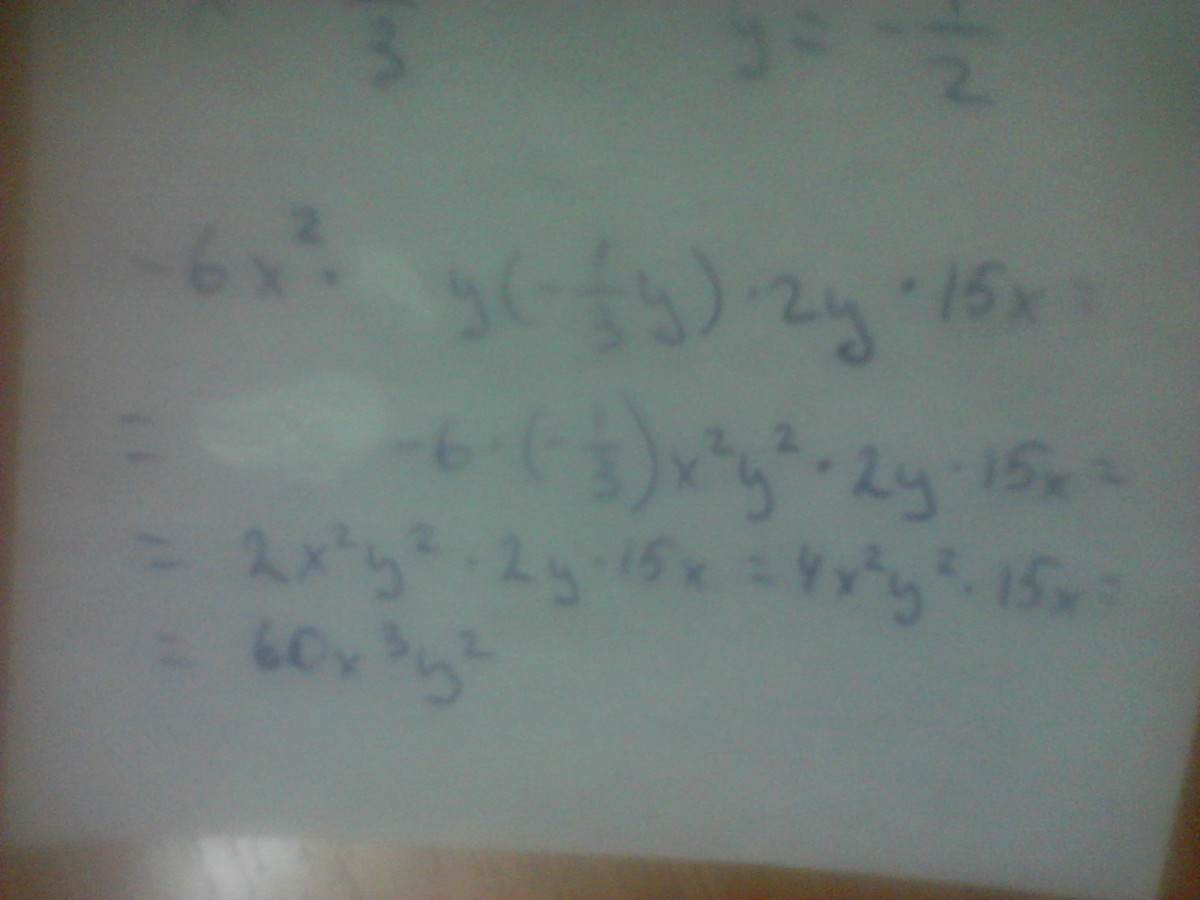 3 y = -1/2
-6x²· y(-1/3y)·2y·15x=
= -6·(-1/3)x²y²·2y·15x=
= 2x²y²·2y·15x = 4x²y²·15x=
= 60x³y²